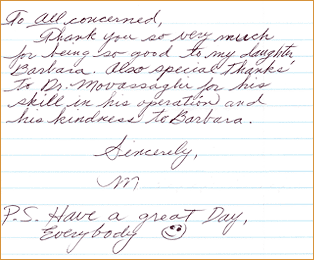 To all concerned,
Thank you so very much
for being so good to my daughter
Barbara. Also special thanks
to Dr. Movassaghi for his
skill in his operation and
his kindness to Barbara.
Sincerely,
M
P.S. Have a great Day,
Everybody